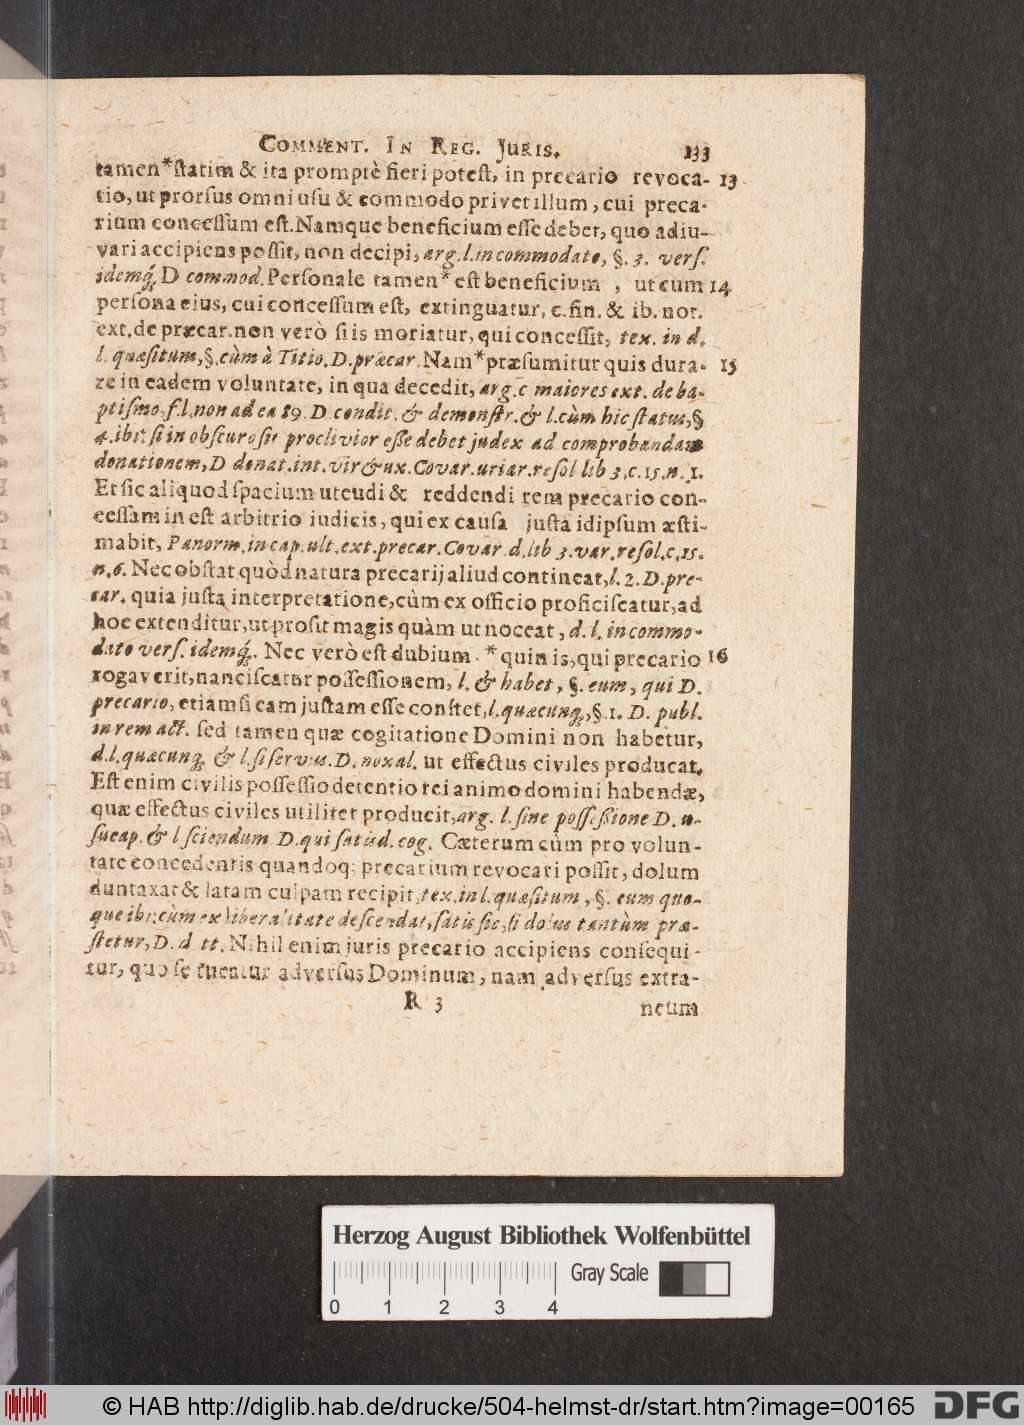 COMMENT. IN REG. JURIS. 133
tamen*statim & ita promptè fieri potest, in precario revoca- 13
tio, ut prorsus omni usu & commodo privet illum, cui preca-
rium concessum est. Namque beneficium esse debet, quo adiu-
vari accipiens possit, non decipi, arg. l. in commodato, §. 3. vers.
idemq́; D commod. Personale tamen* est beneficium, ut cum 14
persona eius, cui concessum est, extinguatur, c. fin. & ib. not.
ext. de præcar. non verò si is moriatur, qui concessit, tex. in d.
l. quæsitum, §. cùm à Titio. D. præcar. Nam*præsumitur quis dura- 15
re in eadem voluntate, in qua decedit, arg. c maiores ext. de ba-
ptismo. f. l. non ad ea 89. D condit. & demonstr. & l. cùm hic status, §
4. ibi: si in obscuro sit proclivior esse debet judex ad comprobandam
donationem, D donat. int. vir & ux. Covar. uriar. resol lib 3. c. 15. n. 1.
Et sic aliquod spacium utendi & reddendi rem precario con-
cessam in est arbitrio iudicis, qui ex causa justa id ipsum æsti-
mabit, Panorm. in cap. ult. ext. precar. Covar. d. lib 3. var. resol. c. 15.
n. 6. Nec obstat quòd natura precarij aliud contineat, l. 2. D. pre-
car. quia justa interpretatione, cùm ex officio proficiscatur, ad
hoc extenditur, ut prosit magis quàm ut noceat, d. l. in commo-
dato vers. idemq́;. Nec verò est dubium *quin is, qui precario 16
rogaverit, nanciscatur possessionem, l. & habet, §. eum, qui D.
precario, etiamsi eam justam esse constet, l. quæcunq́;, §. 1. D. publ.
in rem act. sed tamen quæ cogitatione Domini non habetur,
d. l. quæcunq́; & l. si servus. D. noxal. ut effectus civiles producat.
Est enim civilis possessio detentio rei animo domini habendæ,
quæ effectus civiles utiliter producit, arg. l. sine possessione D. u-
sucap. & l sciendum D. qui satisd. cog. Cæterum cùm pro volun-
tate concedentis quandoq; precarium revocari possit, dolum
duntaxat & latam culpam recipit, tex. in l. quæsitum, §. eum quo-
que ibi: cùm ex liberalitate descendat, satis sic, si dolus tantùm præ-
stetur, D. d tt. Nihil enim juris precario accipiens consequi-
tur, quo se tueatur adversus Dominum, nam adversus extra-
R 3 neum
Herzog August Bibliothek Wolfenbüttel
0 1 2 3 4 Gray Scale
© HAB http://diglib.hab.de/drucke/504-helmst-dr/start.htm?image=00165 DFG